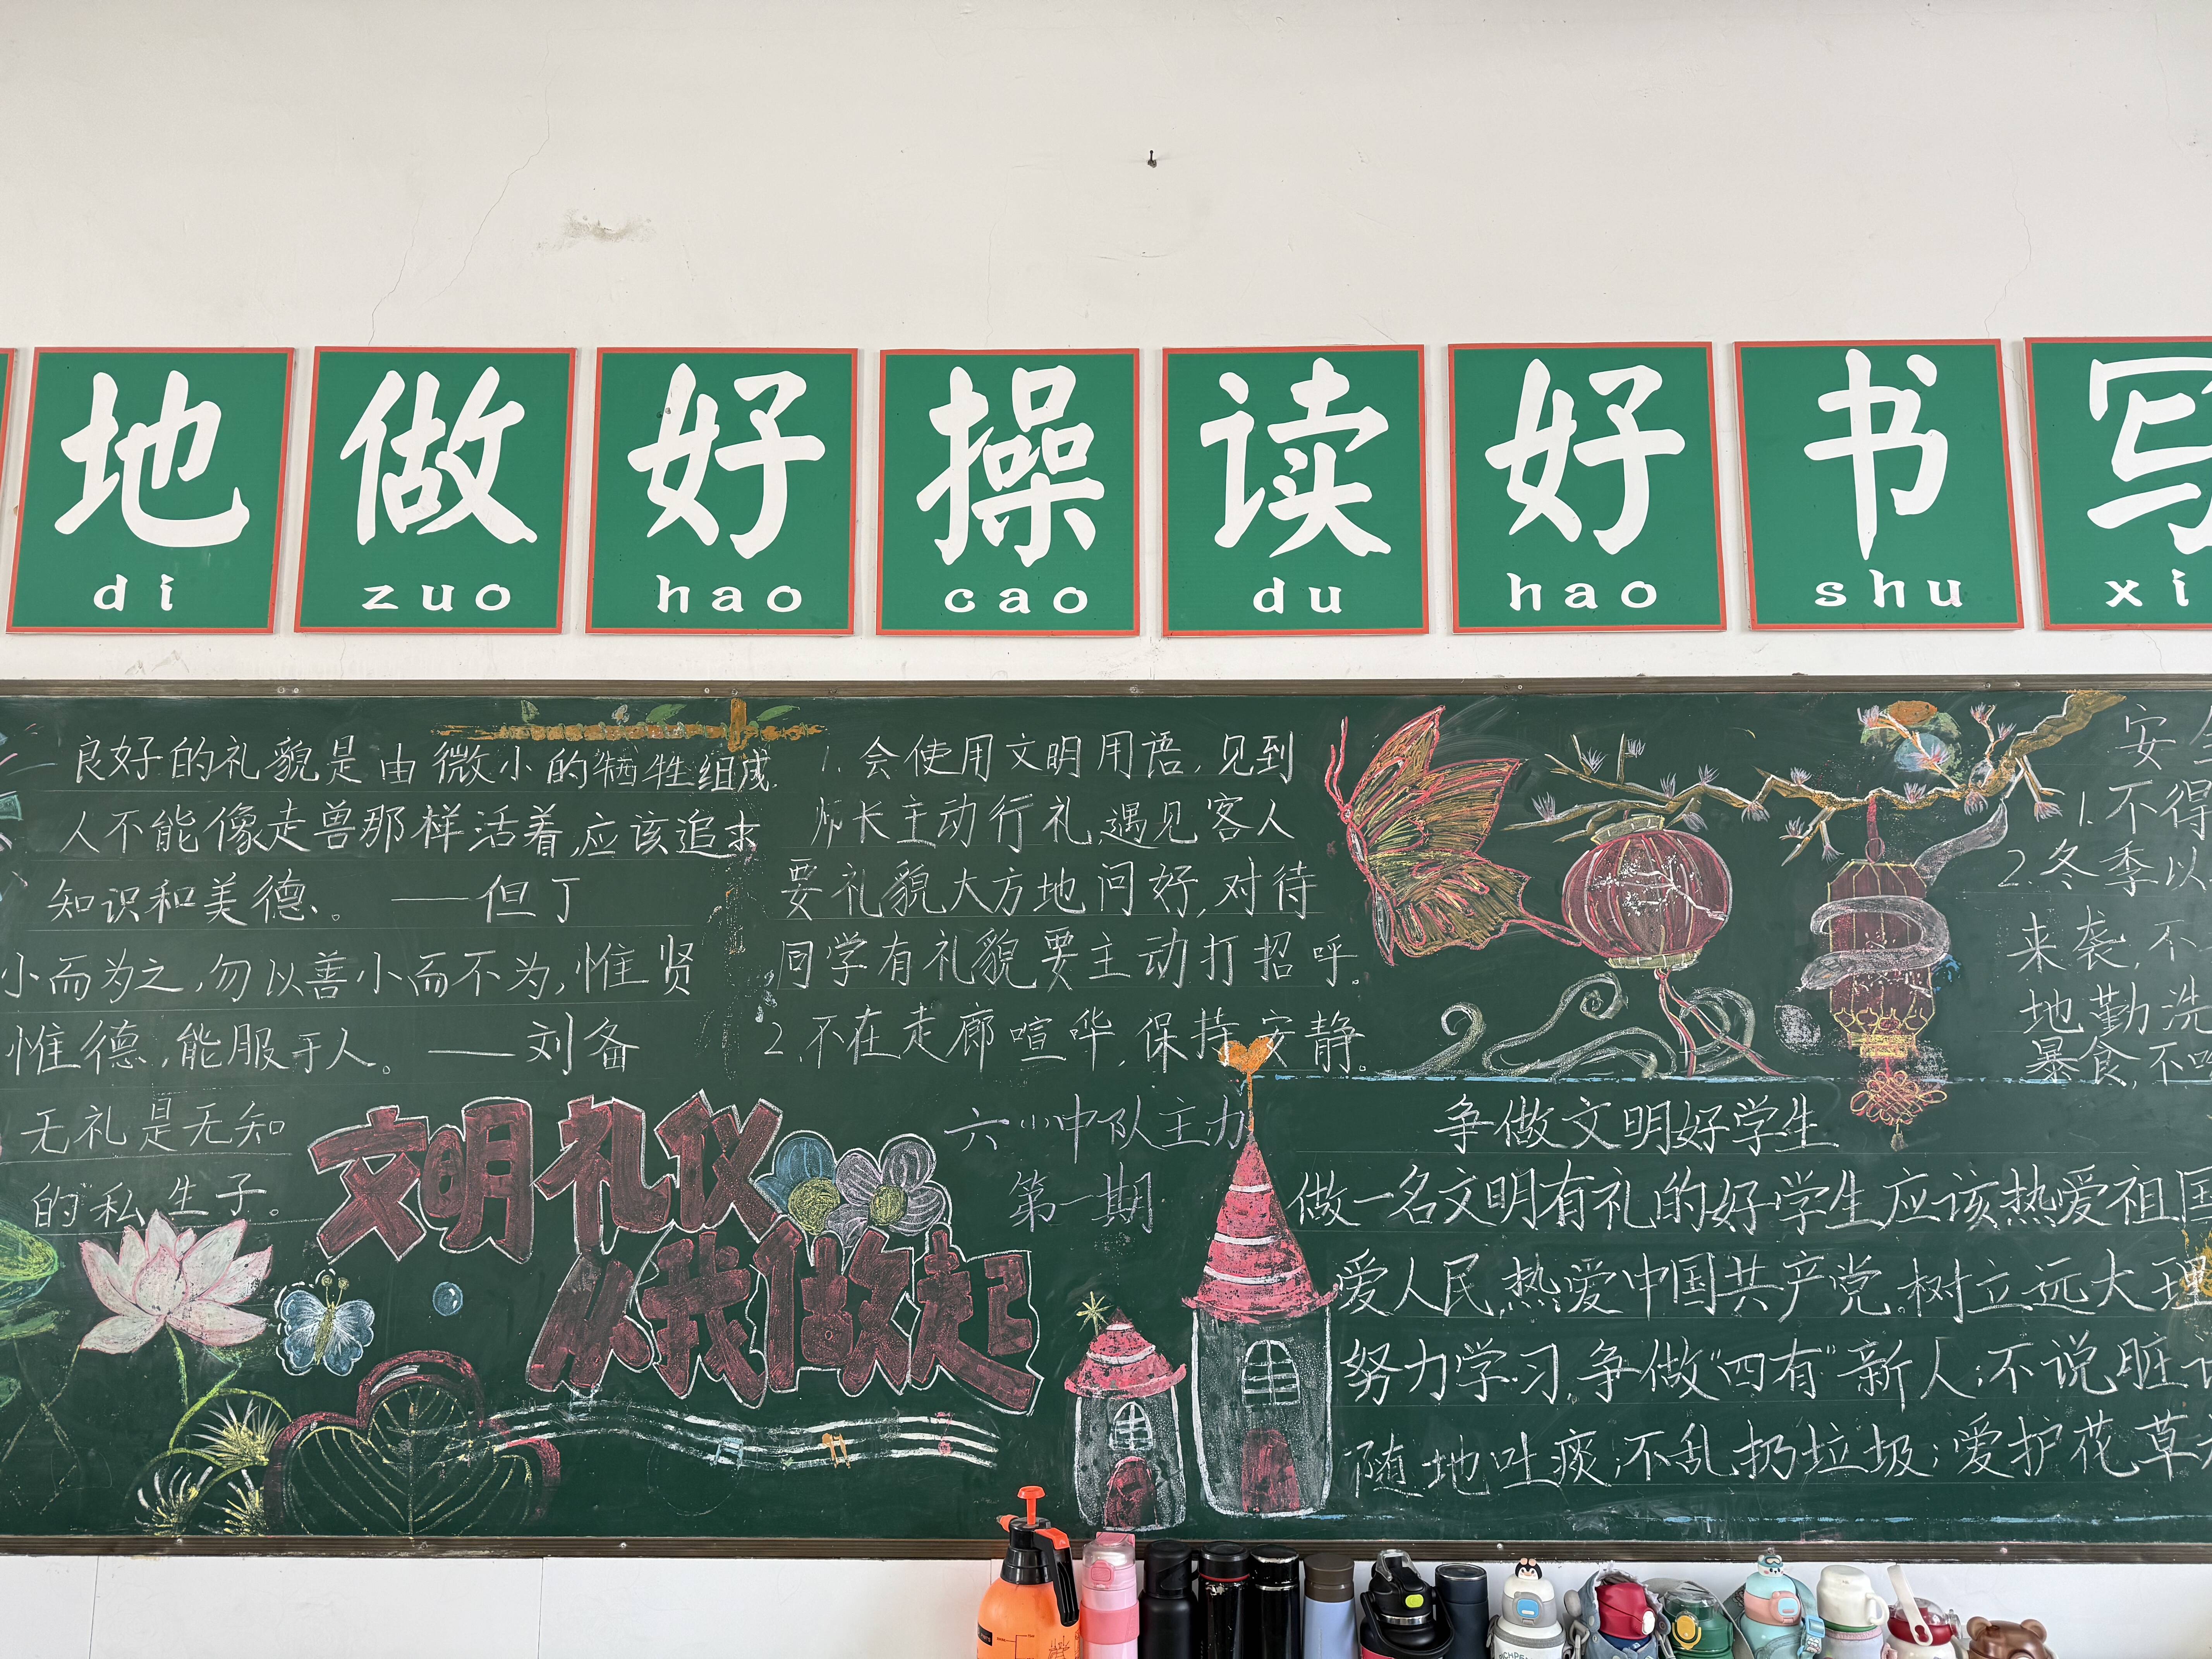 地 做 好 操 读 好 书 写
di zuo hao cao du hao shu xi
良好的礼貌是由微小的牺牲组成.
人不能像走兽那样活着,应该追求
知识和美德。——但丁
小而为之,勿以善小而不为,惟贤
惟德,能服于人。——刘备
无礼是无知
的"私生子。
文明礼仪
从我做起
1.会使用文明用语,见到
师长主动行礼,遇见客人
要礼貌大方地问好,对待
同学有礼貌要主动打招呼。
2.不在走廊喧哗,保持安静。
六(1)中队主办
第一期
争做文明好学生
做一名文明有礼的好学生应该热爱祖国
爱人民,热爱中国共产党。树立远大理
努力学习,争做"四有"新人;不说脏
随地吐痰;不乱扔垃圾;爱护花草
安
1.不得
2.冬季以
来袭,不
地勤洗
暴食,不